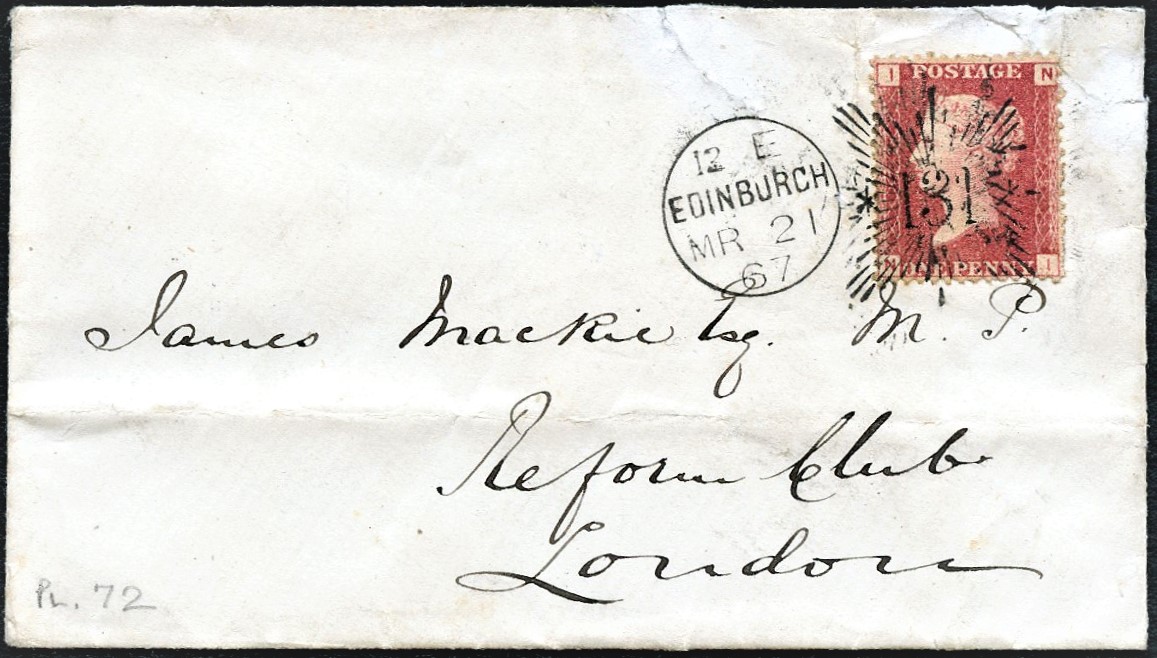 I POSTAGE N
12 E
EDINBURGH
MR 21
67
131
N ONE PENNY I
James Mackie Esq. M. P.
Reform Club
London
PL. 72